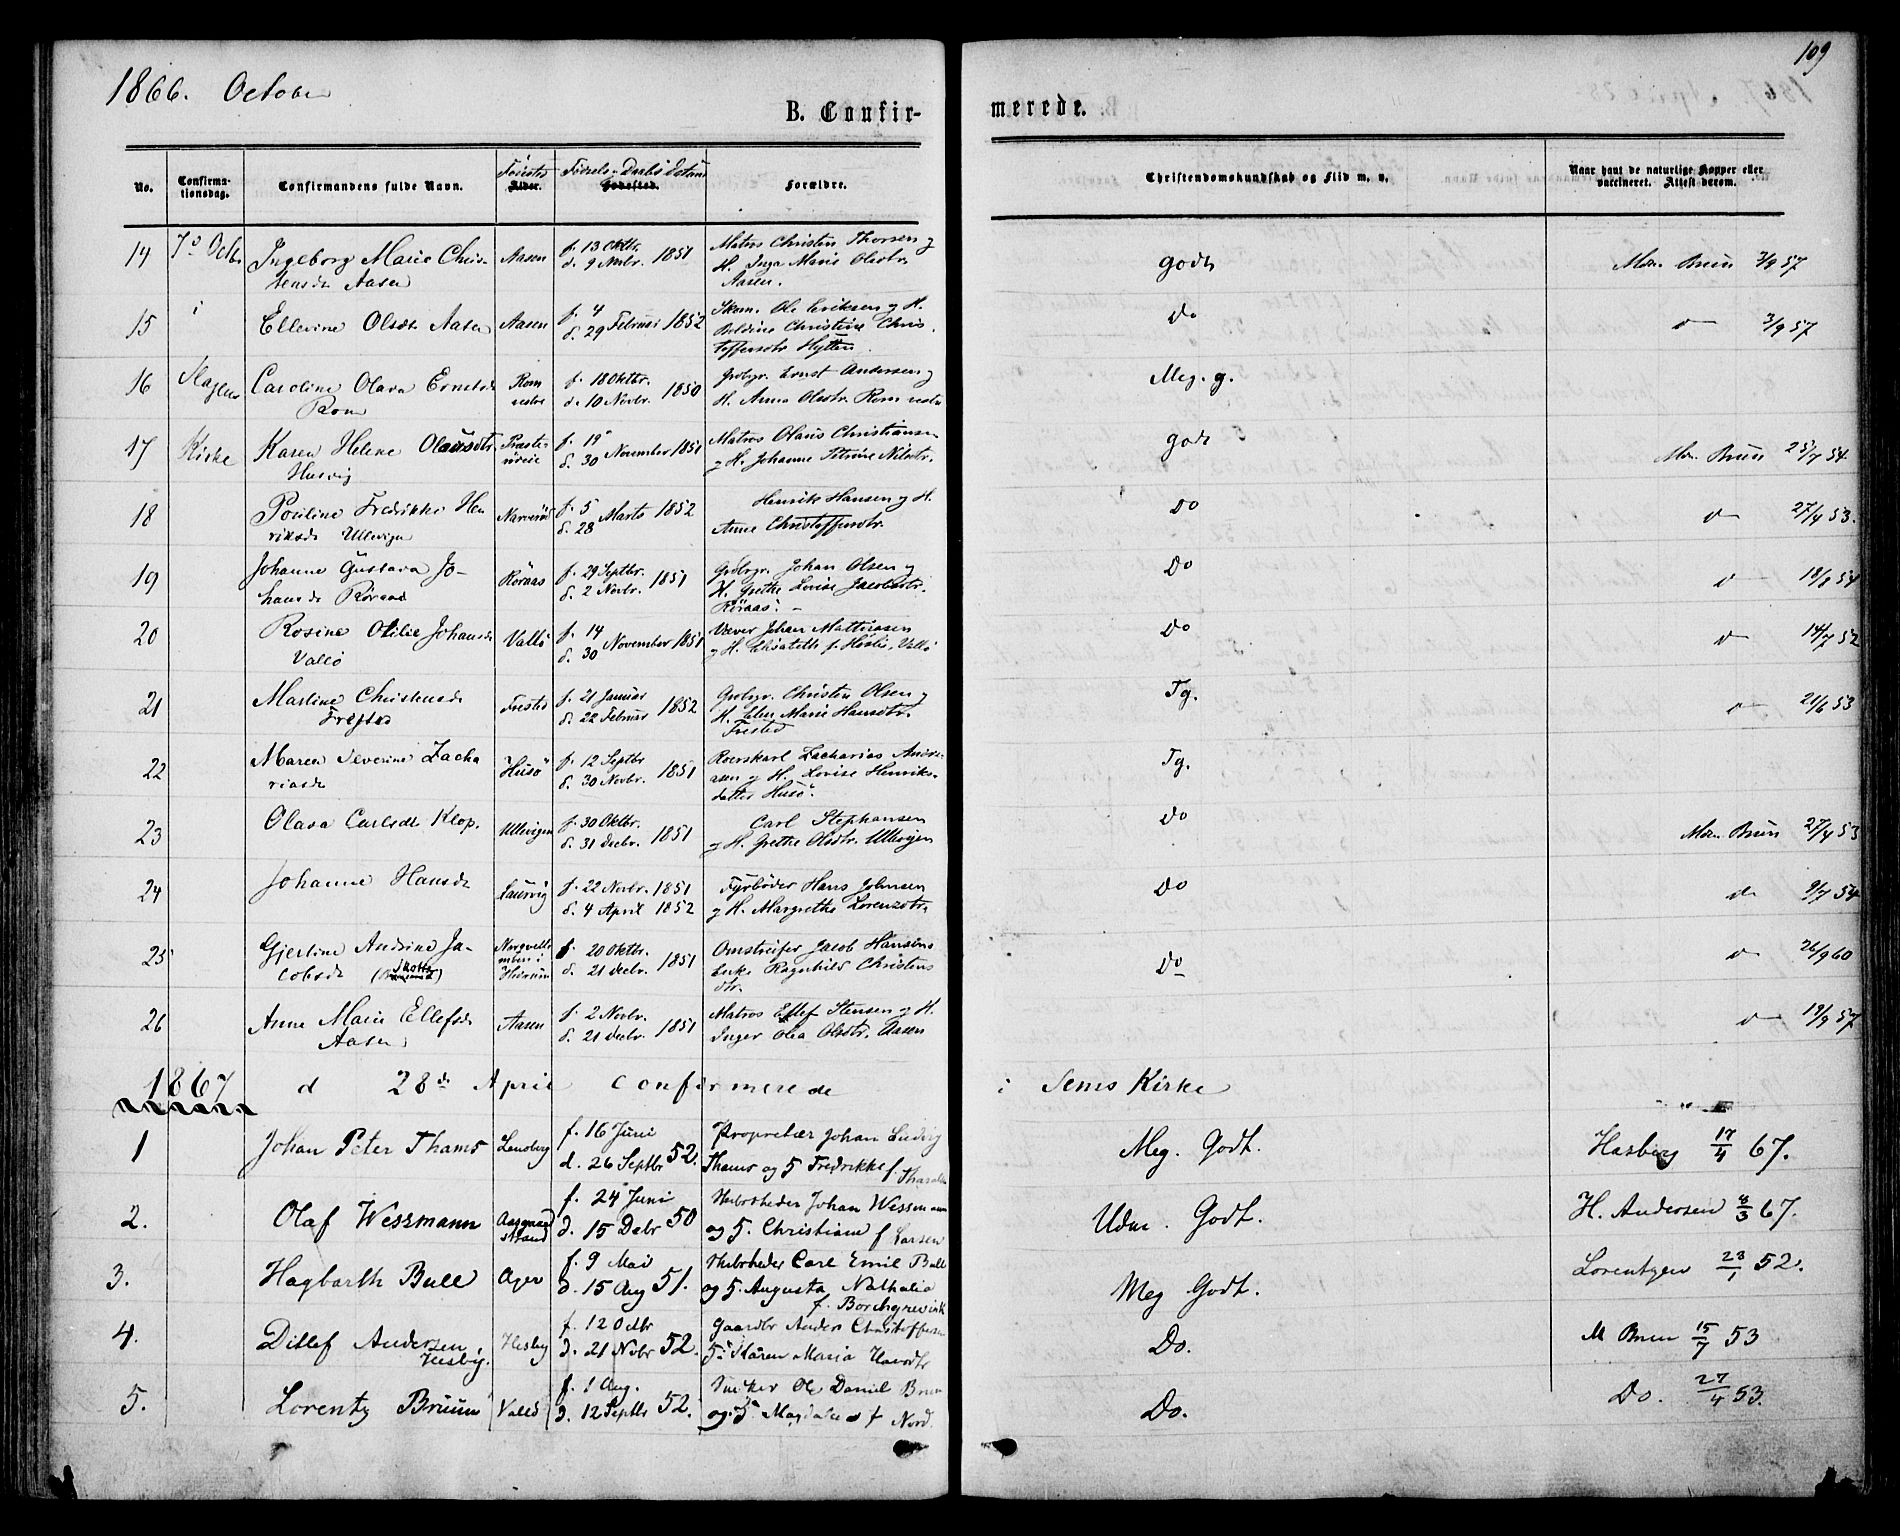 1866. October
109
B. Confir-
merede.
No.
Confirma-
tionsdag.
Confirmandens fulde Navn.
Fødested
Alder.
Fødsels- Daabs Datum
Fødested.
Forældre.
Christendomskundskab og Flid m. v.
Naar havt de naturlige Kopper eller
vaccineret. Attest derom.
14 7de Octbr Ingeborg Marie Chris- Aasen f. 13 Oktbr. 1851 Matros Christen Thorsen og godt Mdm. Bruun 3/9 57
tensdr Aasen d. 9 Novbr. H. Inga Marie Olsdtr.
Aasen.
15 i Ellevine Olsdtr Aasen Aasen f. 4 Februar 1852 Skom. Ole Eriksen og H. Do d 3/9 57
d. 29 Boldine Christine Chris-
toffersdtr Hytten.
16 Slagens Caroline Olava Ernstdr Rom f. 18 Oktbr. 1850 Grdbgr. Ernst Andersen og Meg. g.
Rom vestre d. 10 Novbr. H. Anna Olsdtr. Rom vestre
17 Kirke Karen Helene Olausdtr. Præste- f. 19 November 1851 Matros Olaus Christiansen godt Mdm. Bruun 25/7 54
Husvig d. 30 og H. Johanne Petrine Nilsdtr.
18 Pouline Fredrikke Hen Narverød f. 5 Marts 1852 Henrik Hansen og H. Do d 27/4 53.
riksdr Ullevigen d. 28 Anne Christoffersdtr.
19 Johanne Gustava Jo- Røraas f. 29 Septbr. 1851 Grdbgr. Johan Olsen og Do d 18/8 54
hansdr Røraas d. 2 Novbr. H. Grethe Lovise Jacobsdtr.
Røraas.
20 Rosine Otilie Johansdr Vallø f. 14 November 1851 Væver Johan Mathiasen Do d 14/7 52
Vallø d. 30 og H. Elisabeth f. Vallø
21 Martine Christensdr Frested f. 21 Januar 1852 Grdbgr. Christen Olsen og Tg. d 21/6 53
Frested d. 22 Februar H. Ellen Marie Hansdtr.
Frested
22 Maren Severine Zacha Husø f. 12 Septbr 1851 Roerskarl Zacharias Andre- Tg.
riasdr d. 30 Novbr. asen og H. Lovise Henriks-
datter Husø.
23 Olava Carlsdtr Klop. Ullevigen f. 30 Oktbr. 1851 Carl Stephansen Do Mdm. Bruun 27/4 53
d. 31 Decbr. og H. Grethe Olsdtr. Ullevigen
24 Johanne Hansdr Laurvig f. 22 Novbr. 1851 Fyrbøder Hans Johnsen Do d. 9/7 54
d. 4 April 1852 og H. Margrethe Lorenzdtr.
25 Gjertine Andrine Ja- f. 20 Oktbr. 1851 Omstreifer Jacob Hansens Do d 26/9 60
cobsdr Hedrum d. 21 Decbr. Enke Ragnhild Christens
dtr.
26 Anne Marie Ellefsdr Aasen f. 2 Novbr. 1851 Matros Ellef Stensen og H. d 19/9 57
Aasen d. 21 Decbr. Inger Olea Olsdtr. Aasen
1867 d 28de April confirmerede i Sems Kirke
1 Johan Peter Thams f. 16 Juni 52. Proprietær Johan Ludvig Meg. Godt. Hasberg 17/4 67.
d. 26 Septbr Thams og H. Fredrikke f.
2. Olaf Wessmann Aasgaard f. 24 Juni 50 Johan Wessmann Udm. Godt. H. Andersen 8/3 67.
strand d. 15 Debr og H. Christiane f Larsen
3. Hagbarth Bull Ager f. 9 Mai 51. Carl Emil Bull Meg Godt. Lorentzen 23/1 52.
d. 15 Aug og H. Augusta Nathalia
f. Borchgrevink
4. Ditlef Andersen Hesby f. 12 Octbr 52. Gaardbr Anders Christoffersen Do. M Bruun 15/7 53
Husby. d. 21 Novbr H. Karen Maria
5. Lorentz Bruun Vallø f. 1 Aug. 52. Snicker Ole Daniel Bruun Do. Do. 27/4 53.
d. 12 Septbr og H. f Nord.